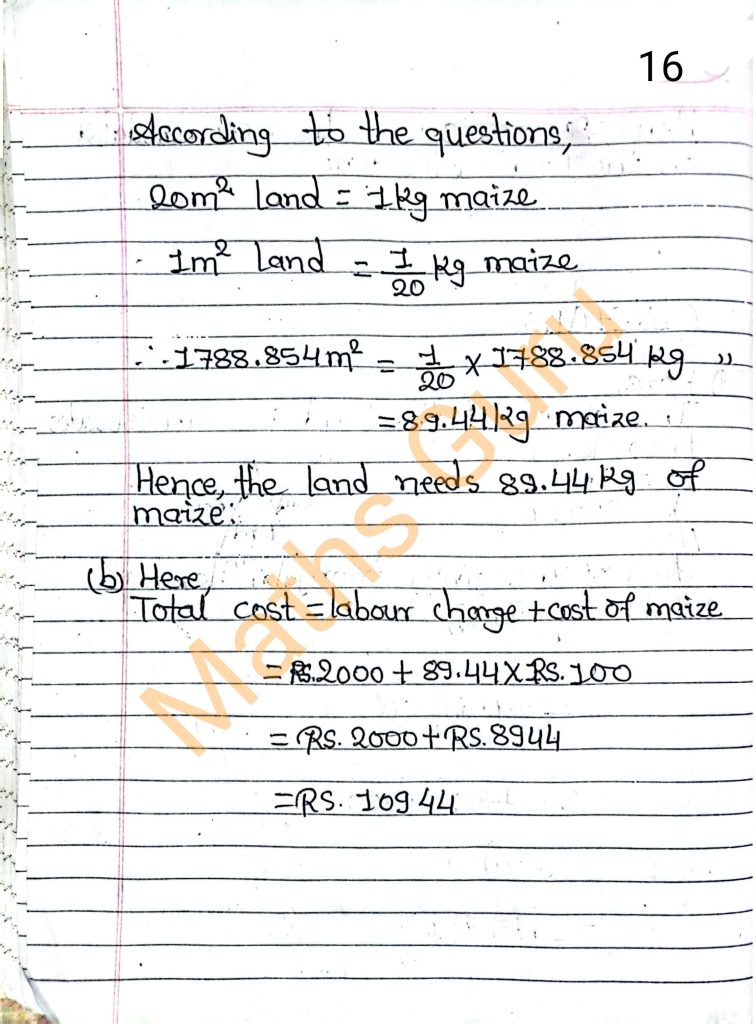 16
According to the questions,
20m² land = 1kg maize
1m² land = 1/20 kg maize
∴ 1788.854m² = 1/20 × 1788.854 kg ,,
= 89.44kg maize.
Hence, the land needs 89.44 kg of
maize.
(b) Here,
Total cost = labour charge + cost of maize
= RS. 2000 + 89.44 × RS. 100
= RS. 2000 + RS. 8944
= RS. 10944
Maths Guru